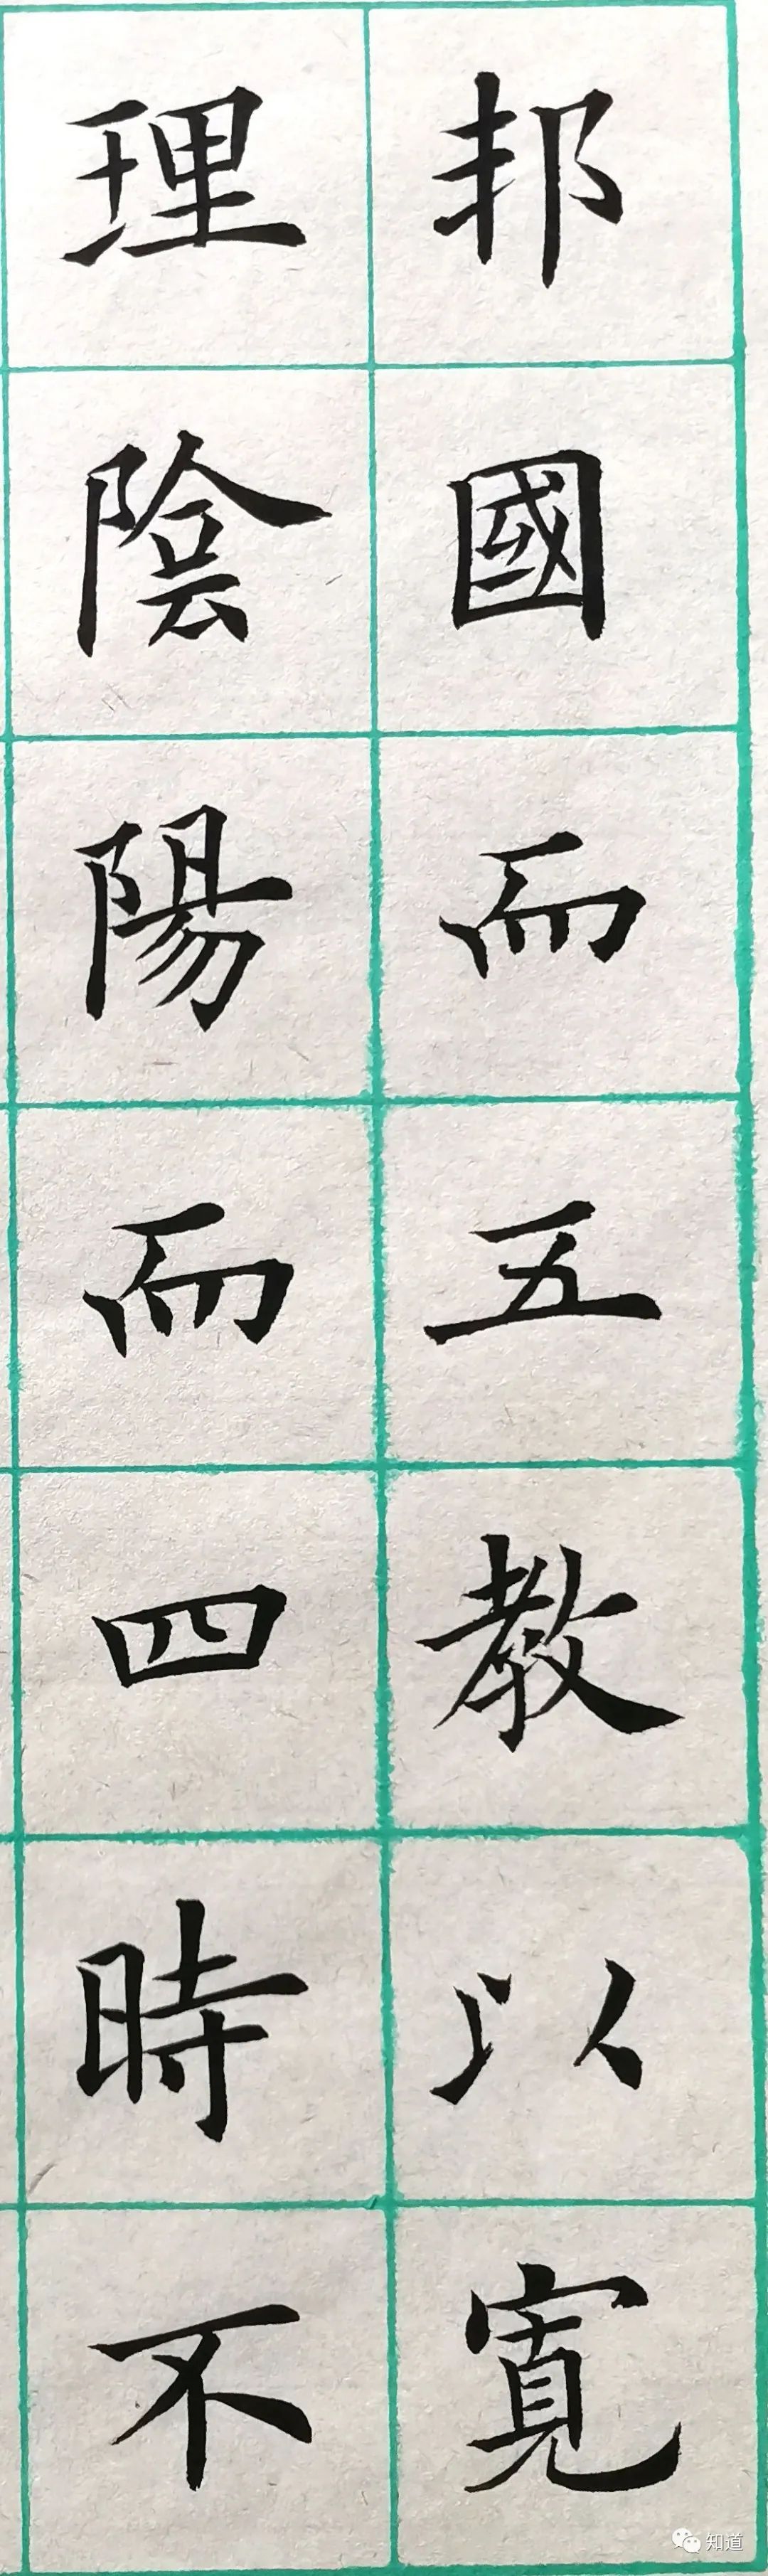 邦國而五教以寬
理陰陽而四時不
知道